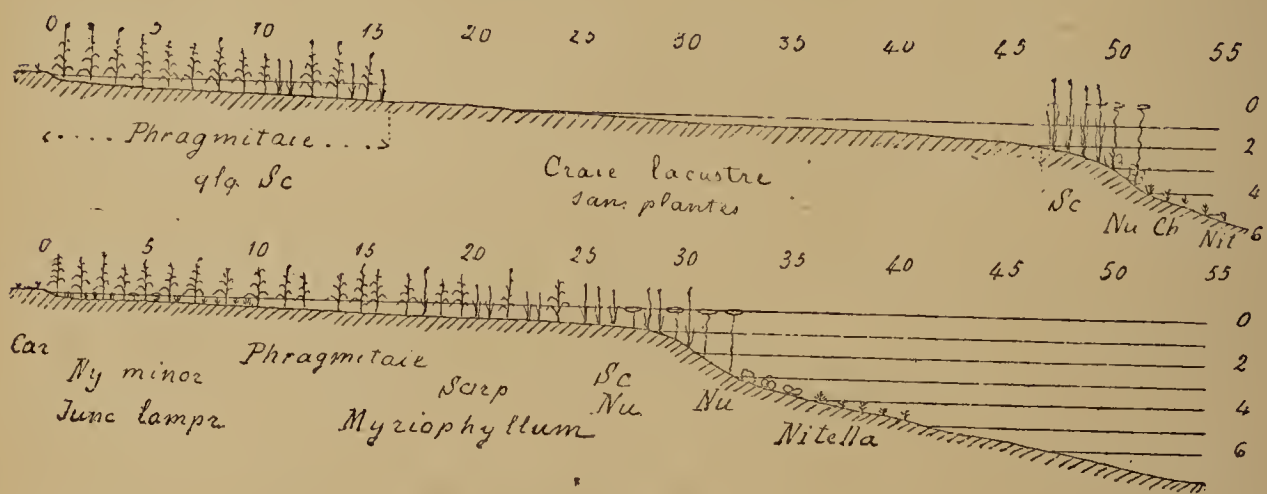 0 5 10 15 20 25 30 35 40 45 50 55
0
2
4
6
Phragmitaie
qlq Sc
Craie lacustre
sans plantes
Sc
Nu Ch Nit
0 5 10 15 20 25 30 35 40 45 50 55
0
2
4
6
Car
Ny minor
Junc lampr.
Phragmitaie
Scirp
Myriophyllum
Sc
Nu.
Nu
Nitella